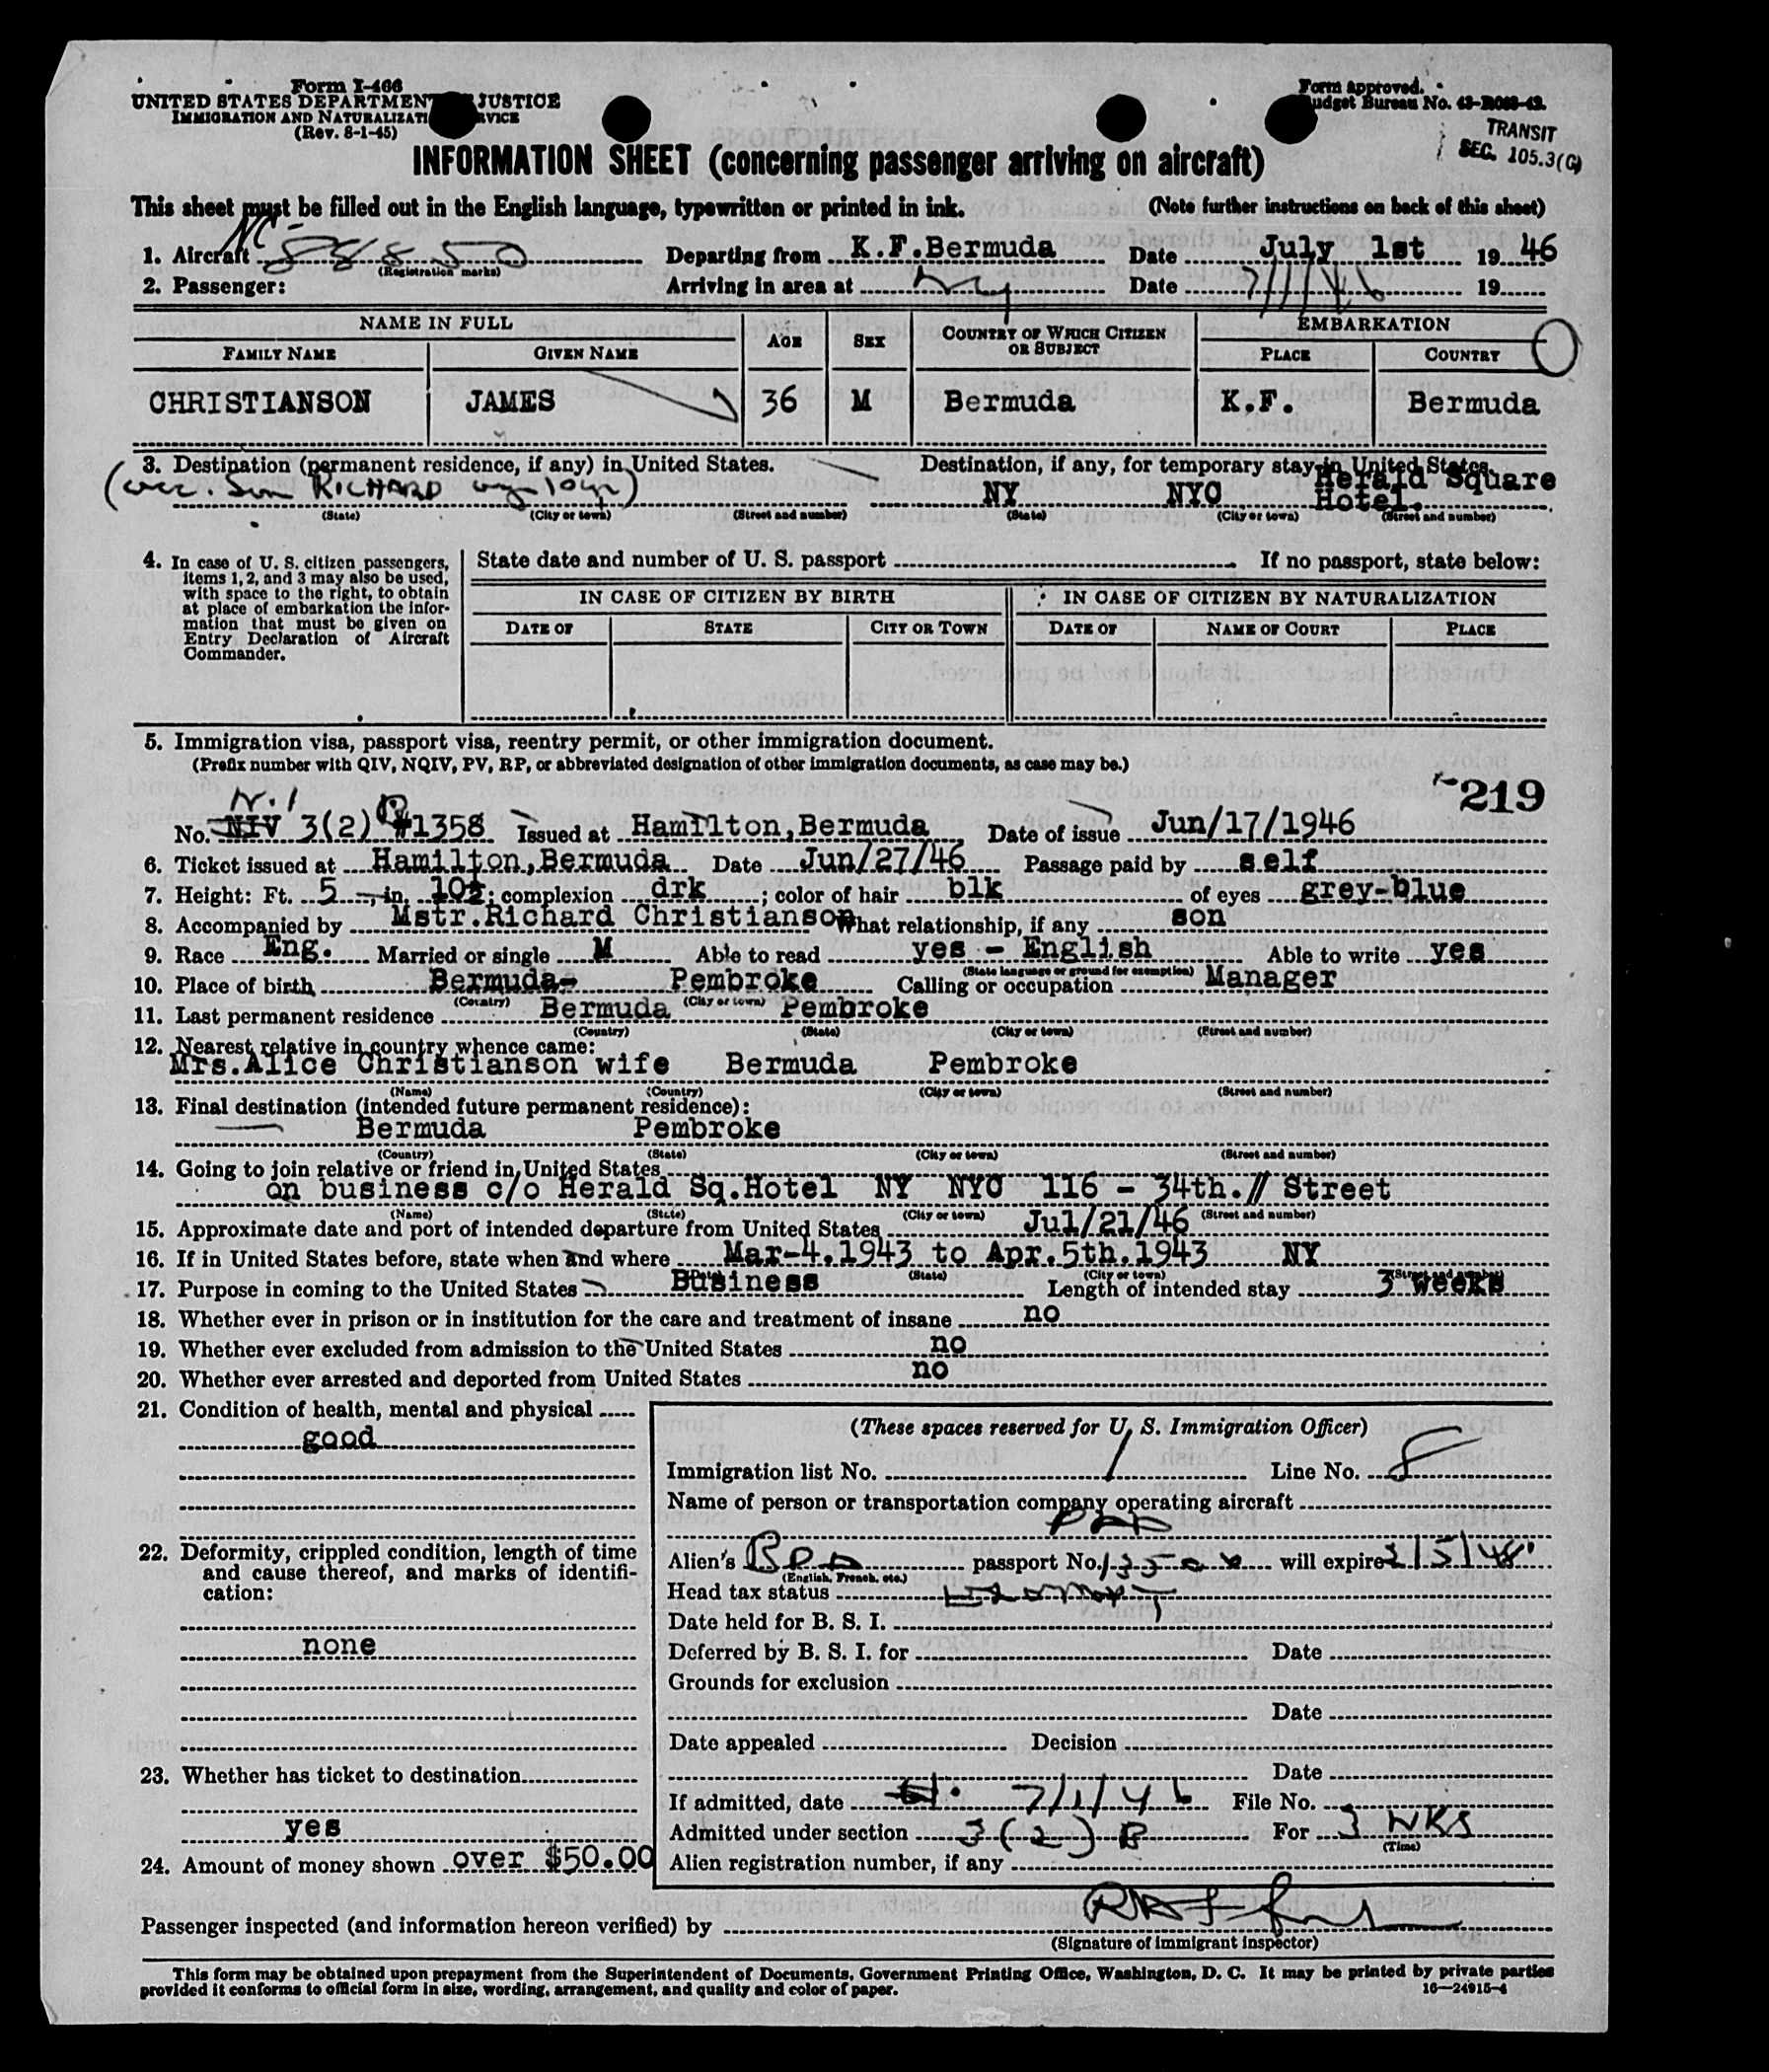 Form I-466
UNITED STATES DEPARTMENT JUSTICE
IMMIGRATION AND NATURALIZATI RVICE
(Rev. 8-1-45)
Form approved.
udget Bureau No.
TRANSIT
SEC. 105.3(G)
INFORMATION SHEET (concerning passenger arriving on aircraft)
This sheet must be filled out in the English language, typewritten or printed in ink. (Note further instructions on back of this sheet)
1. Aircraft NC- 88850 Departing from K.F.Bermuda Date July 1st 19 46
(Registration marks)
2. Passenger: Arriving in area at NY Date 7/1/46 19
NAME IN FULL AGE SEX COUNTRY OF WHICH CITIZEN OR SUBJECT EMBARKATION
FAMILY NAME GIVEN NAME PLACE COUNTRY
CHRISTIANSON JAMES 36 M Bermuda K.F. Bermuda
3. Destination (permanent residence, if any) in United States. Destination, if any, for temporary stay in United States.
(acc. Son RICHARD 10 yr) NY NYC Herald Square Hotel.
(State) (City or town) (Street and number) (State) (City or town) (Street and number)
4. In case of U. S. citizen passengers, items 1, 2, and 3 may also be used, with space to the right, to obtain at place of embarkation the information that must be given on Entry Declaration of Aircraft Commander.
State date and number of U. S. passport If no passport, state below:
IN CASE OF CITIZEN BY BIRTH IN CASE OF CITIZEN BY NATURALIZATION
DATE OF STATE CITY OR TOWN DATE OF NAME OF COURT PLACE
5. Immigration visa, passport visa, reentry permit, or other immigration document.
(Prefix number with QIV, NQIV, PV, RP, or abbreviated designation of other immigration documents, as case may be.)
219
N.I
No. NIV 3(2) B #1358 Issued at Hamilton,Bermuda Date of issue Jun/17/1946
6. Ticket issued at Hamilton,Bermuda Date Jun/27/46 Passage paid by self
7. Height: Ft. 5 in. 10½; complexion drk; color of hair blk of eyes grey-blue
8. Accompanied by Mstr.Richard Christianson What relationship, if any son
9. Race Eng. Married or single M Able to read yes - English Able to write yes
(State language or ground for exemption)
10. Place of birth Bermuda- Pembroke Calling or occupation Manager
(Country) (City or town)
11. Last permanent residence Bermuda Pembroke
(Country) (State) (City or town) (Street and number)
12. Nearest relative in country whence came:
Mrs.Alice Christianson wife Bermuda Pembroke
(Name) (Country) (City or town) (Street and number)
13. Final destination (intended future permanent residence):
Bermuda Pembroke
(Country) (State) (City or town) (Street and number)
14. Going to join relative or friend in United States
on business c/o Herald Sq.Hotel NY NYC 116 - 34th.// Street
(Name) (State) (City or town) (Street and number)
15. Approximate date and port of intended departure from United States Jul/21/46
16. If in United States before, state when and where Mar-4.1943 to Apr.5th.1943 NY
(State) (City or town) (Street and number)
17. Purpose in coming to the United States Business Length of intended stay 3 weeks
18. Whether ever in prison or in institution for the care and treatment of insane no
19. Whether ever excluded from admission to the United States no
20. Whether ever arrested and deported from United States no
21. Condition of health, mental and physical
good
22. Deformity, crippled condition, length of time and cause thereof, and marks of identification:
none
23. Whether has ticket to destination
yes
24. Amount of money shown over $50.00
(These spaces reserved for U. S. Immigration Officer)
Immigration list No. 1 Line No. 8
Name of person or transportation company operating aircraft
PAA
Alien's passport No. will expire 2/5/48
(English, French, etc.)
Head tax status Exempt
Date held for B. S. I.
Deferred by B. S. I. for Date
Grounds for exclusion
Date
Date appealed Decision
Date
If admitted, date 7/1/46 File No.
Admitted under section 3(2) B For 3 WKS
(Time)
Alien registration number, if any
Passenger inspected (and information hereon verified) by
(Signature of immigrant inspector)
This form may be obtained upon prepayment from the Superintendent of Documents, Government Printing Office, Washington, D. C. It may be printed by private parties
provided it conforms to official form in size, wording, arrangement, and quality and color of paper. 16—24915-4